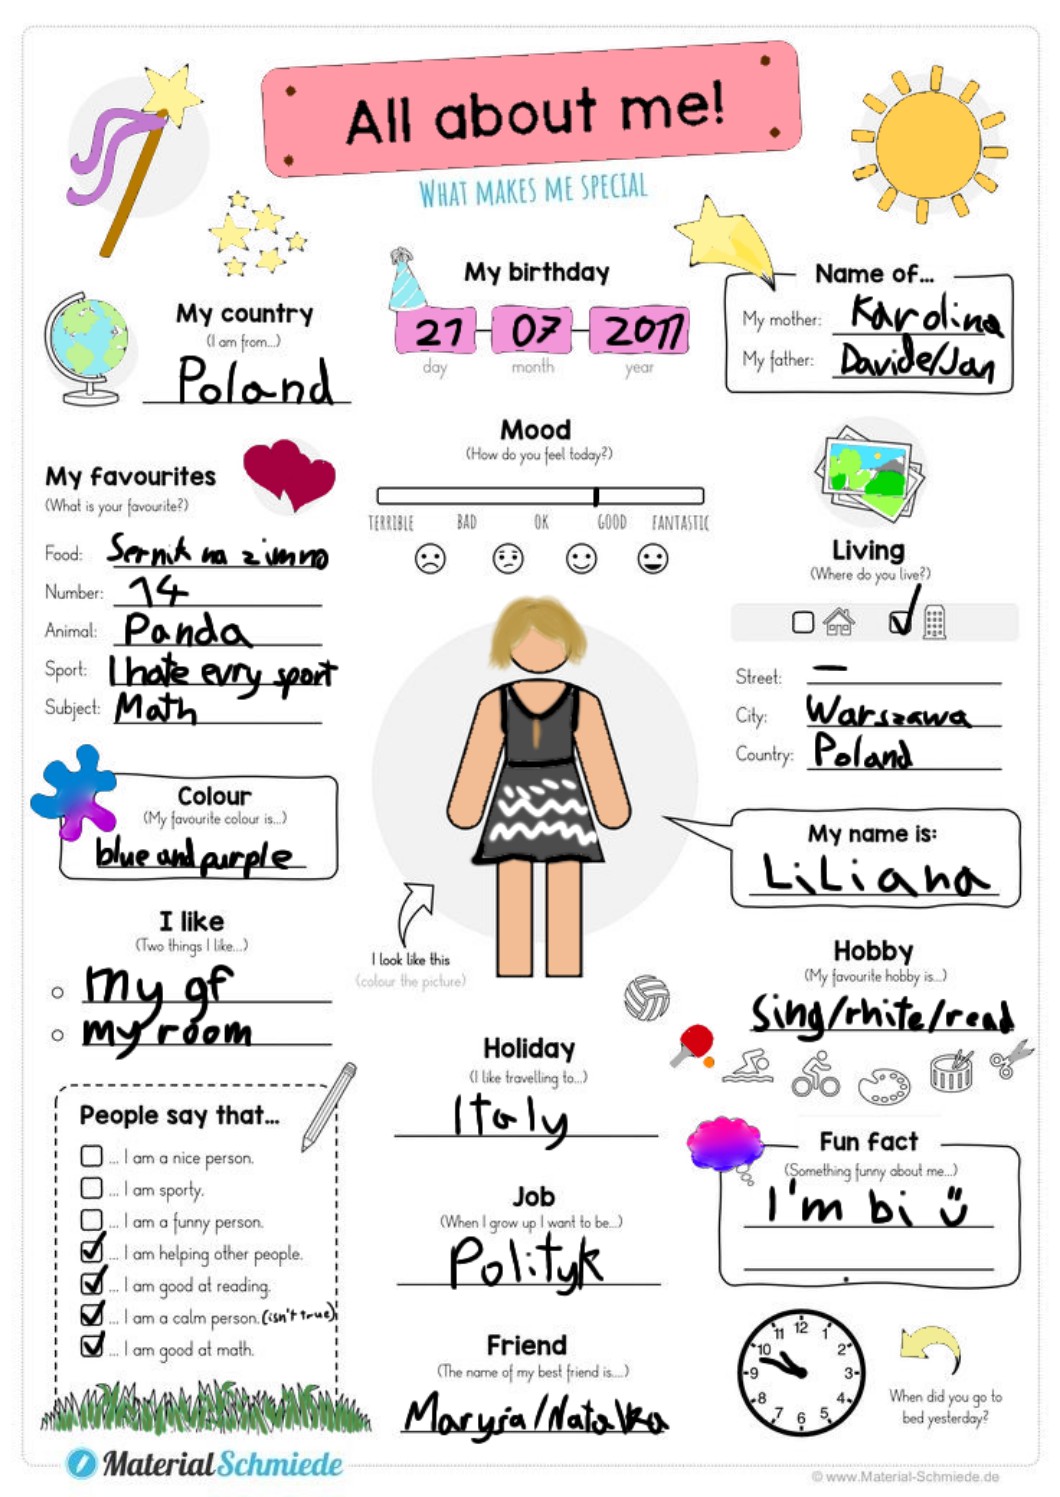 All about me!
WHAT MAKES ME SPECIAL
My country
(I am from...)
Poland
My birthday
21 07 2011
day month year
Name of...
My mother: Karolina
My father: Davide/Jan
My favourites
(What is your favourite?)
Food: Sernik na zimno
Number: 14
Animal: Panda
Sport: I hate evry sport
Subject: Math
Mood
(How do you feel today?)
TERRIBLE BAD OK GOOD FANTASTIC
Living
(Where do you live?)
Street: –
City: Warszawa
Country: Poland
Colour
(My favourite colour is...)
blue and purple
My name is:
LiLiana
I like
(Two things I like...)
my gf
my room
I look like this
(colour the picture)
Hobby
(My favourite hobby is...)
Sing/rhite/read
Holiday
(I like travelling to...)
Italy
People say that...
... I am a nice person.
... I am sporty.
... I am a funny person.
... I am helping other people.
... I am good at reading.
... I am a calm person. (isn't true)
... I am good at math.
Job
(When I grow up I want to be...)
Polityk
Fun fact
(Something funny about me...)
I'm bi
Friend
(The name of my best friend is....)
Marysia/Natalka
12 1 2 3 4 5 6 7 8 9 10 11
When did you go to
bed yesterday?
MaterialSchmiede
© www.Material-Schmiede.de